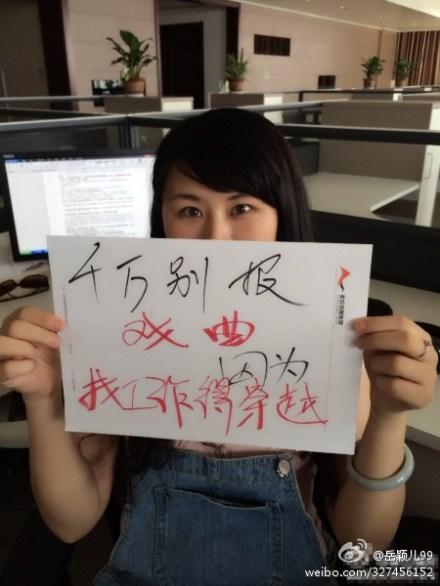 千万别报
戏曲
因为
找工作得穿越
@岳颖儿99
weibo.com/327456152